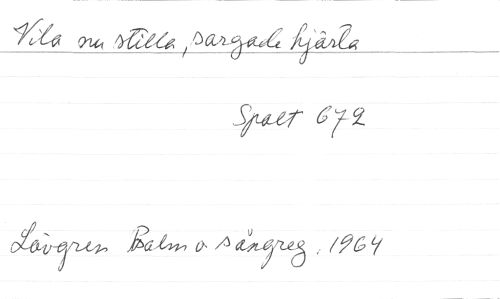 Vila nu stilla, sargade hjärta
Spalt 672
Lövgren Psalm o sångreg. 1964